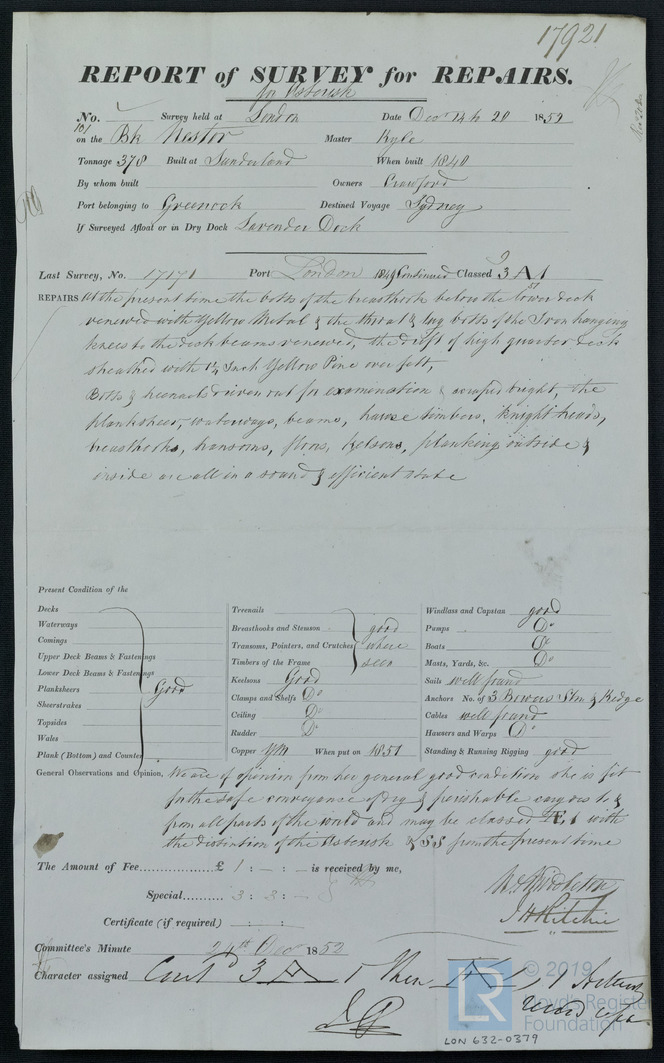 17921
REPORT of SURVEY for REPAIRS.
for Asterisk
No. Survey held at London Date Decr 14 to 20 1852
101
on the Bk Nestor Master Kyle
Tonnage 378 Built at Sunderland When built 1840
By whom built Owners Crawford
Port belonging to Greenock Destined Voyage Sydney
If Surveyed Afloat or in Dry Dock Lavender Dock
Last Survey, No. 17171 Port London 1849 Continued Classed 3 A 1
REPAIRS At the present time the bolts of the breasthook below the lower deck
renewed with Yellow Metal & the throat & lug bolts of the Iron hanging
knees to the deck beams renewed, the of high quarter Deck
sheathed with 1¼ Inch Yellow Pine over felt,
Bolts & treenails driven out for examination & scraped bright, the
plansheer, waterways, beams, hawse timbers, Knight heads,
breasthooks, transoms, floors, kelsons, planking outside &
inside are all in a sound & efficient state
Present Condition of the
Decks
Waterways
Comings
Upper Deck Beams & Fastenings
Lower Deck Beams & Fastenings
Planksheers Good
Sheerstrakes
Topsides
Wales
Plank (Bottom) and Counter
Treenails
Breasthooks and Stemson good
Transoms, Pointers, and Crutches where
Timbers of the Frame seen
Keelsons Good
Clamps and Shelfs Do
Ceiling Do
Rudder Do
Copper YM When put on 1851
Windlass and Capstan good
Pumps Do
Boats Do
Masts, Yards, &c. Do
Sails well found
Anchors No. of 3 Bowers Stm & Kedge
Cables well found
Hawsers and Warps Do
Standing & Running Rigging good
General Observations and Opinion, We are of opinion from her general good condition she is fit
for the safe conveyance of dry & perishable cargoes to &
from all parts of the world and may be classed Æ 1 with
the distinction of the Asterisk from the present time
The Amount of Fee £ 1 : - : - is received by me,
Special 3 : 3 : -
Certificate (if required) : :
W. Middleton
J H Ritchie
Committee's Minute 24th Decr 1852
Character assigned Cont'd 3 A 1 then Æ 1 Asterisk
© 2019
Lloyd's Register
Foundation
LON 632-0379